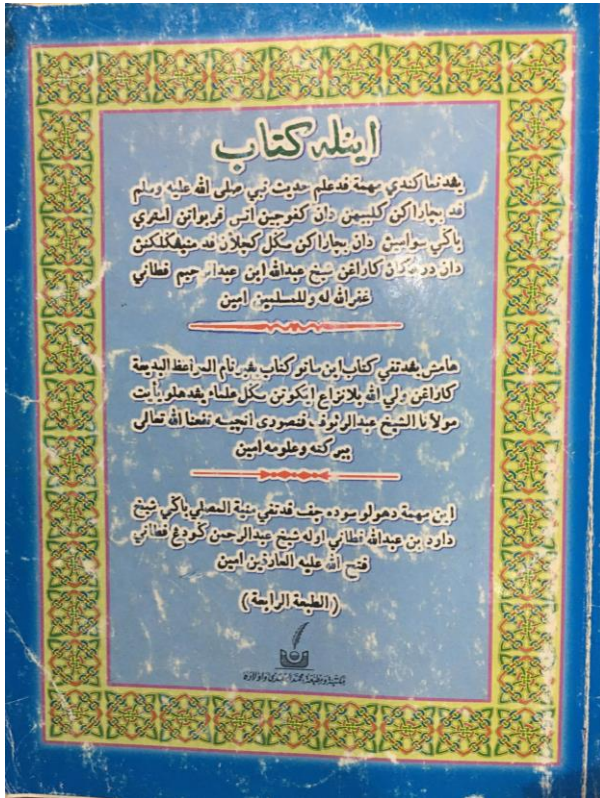 اينله كتاب
يڠدنماكندي مهمة ڤد علم حديث نبي صلى الله عليه وسلم
ڤد بچاراكن كلبيهن دان كفوجين اتس ڤربواتن استري
باڬي سوامين دان بچاراكن سڬل كچلاءن ڤد مڠڬلكنن
دان درهكان كاراڠن شيخ عبدالله ابن عبدالرحيم فطاني
غفرالله له وللمسلمين امين
هامش يڠدتڤي كتاب اين ساتو كتاب يڠبرنام المواعظ البديعة
كاراڠن ولي الله بلانزاع ايكوتن سڬل علماء يڠدهلو يأيت
مولانا الشيخ عبدالرؤوف فنصوري اڠچيه نفعنا الله تعالى
ببركته وعلومه امين
اين مهمة دهولو سوده چف ڤد تڤي منية المصلي باڬي شيخ
داود بن عبدالله فطاني اوله شيخ عبدالرحمن ڬودڠ فطاني
فتح الله عليه العارفين امين
(الطبعة الرابعة)
مكتبة ومطبعة محمد النهدي واولاده